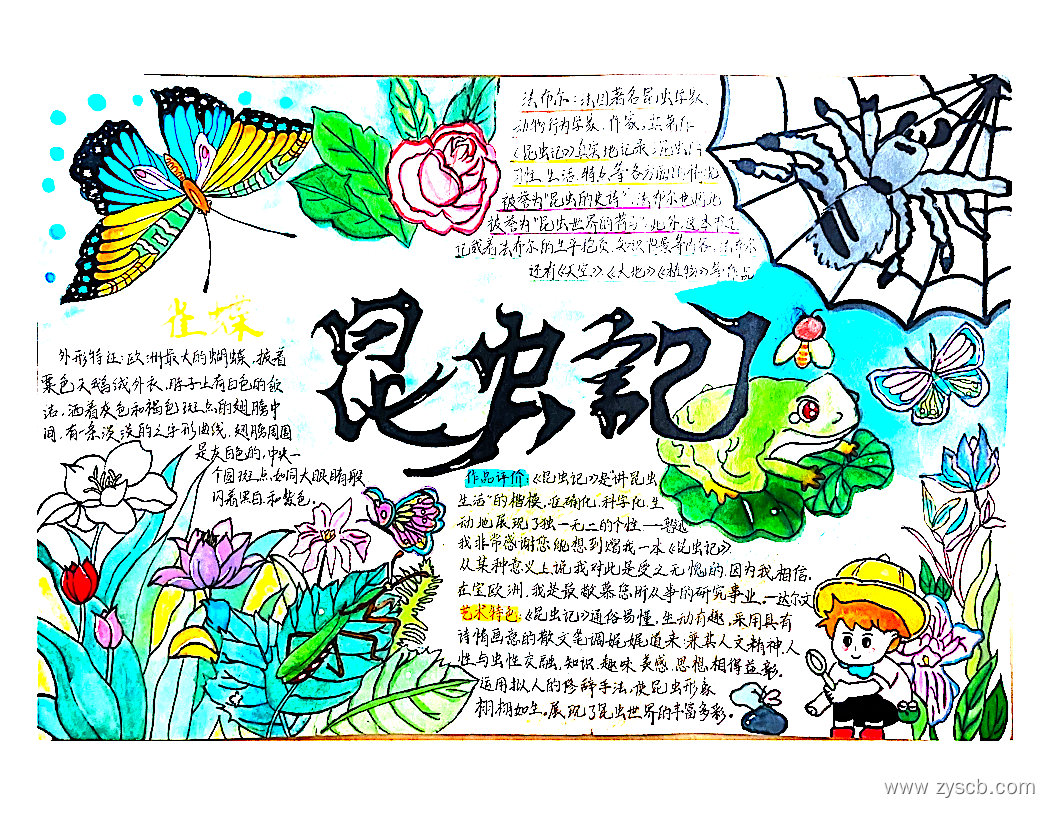 法布尔:法国著名昆虫学家、
动物行为学家、作家,其著作
《昆虫记》真实地记录了昆虫的
习性、生活、特点等各方面的情况
被誉为"昆虫的史诗",法布尔也因此
被誉为"昆虫世界的荷马"。此外,这本书还
记载着法布尔的生平抱负、知识背景等内容,法布尔
还有《天空》《大地》《植物》等作品
昆虫記
雀蝶
外形特征:欧洲最大的蝴蝶,披着
栗色天鹅绒外衣,脖子上有白色的领
洁,洒着灰色和褐色斑点的翅膀中
间,有一条淡淡的之字形曲线,翅膀周围
是灰白色的,中央一
个圆斑点,如同大眼睛般
闪着黑白和紫色。
作品评价:《昆虫记》是讲昆虫
生活"的楷模,准确化、科学化、生
动地展现了独一无二的个性——鲁迅
我非常感谢您能想到赠我一本《昆虫记》
从某种意义上说,我对此是受之无愧的,因为我相信,
在室欧洲,我是最敬慕您所从事的研究事业。—达尔文
艺术特色:《昆虫记》通俗易懂,生动有趣,采用具有
诗情画意的散文笔调娓娓道来,兼其人文精神,人
性与虫性交融,知识、趣味、美感、思想,相得益彰。
运用拟人的修辞手法,使昆虫形象
栩栩如生,展现了昆虫世界的丰富多彩。
www.zyscb.com